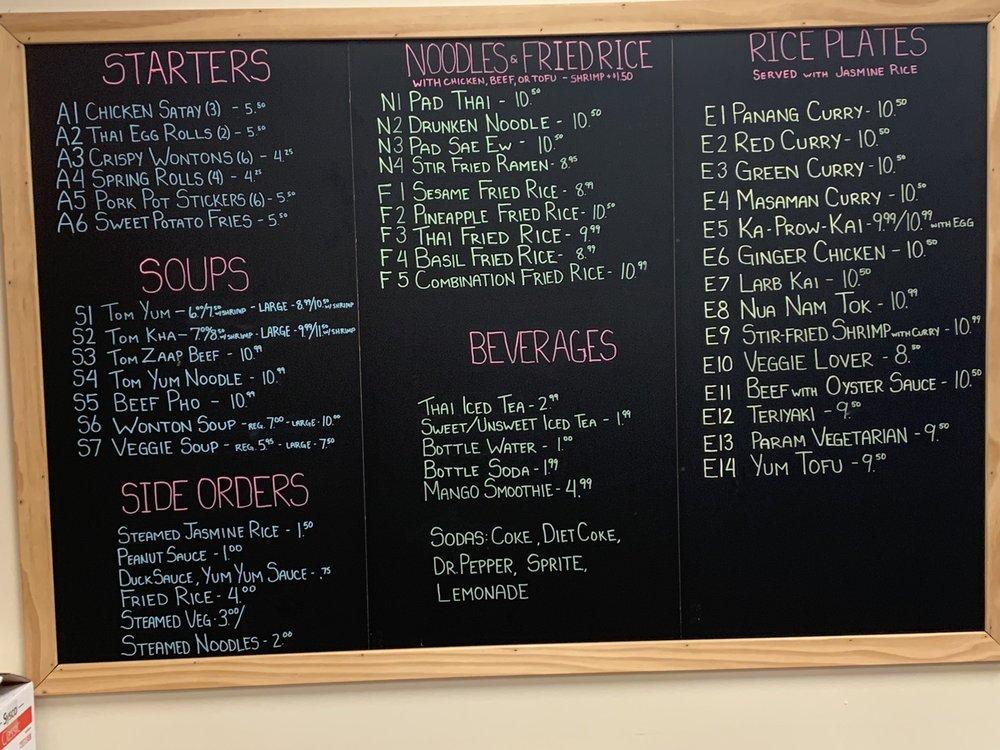 STARTERS
A1 CHICKEN SATAY (3) - 5.50
A2 THAI EGG ROLLS (2) - 5.50
A3 CRISPY WONTONS (6) - 4.25
A4 SPRING ROLLS (4) - 4.25
A5 PORK POT STICKERS (6) - 5.50
A6 SWEET POTATO FRIES - 5.50
SOUPS
S1 TOM YUM - 6.00/7.50 W/SHRIMP - LARGE - 8.99/10.50 W/SHRIMP
S2 TOM KHA - 7.00/8.50 W/SHRIMP - LARGE - 9.99/11.50 W/SHRIMP
S3 TOM ZAAP BEEF - 10.99
S4 TOM YUM NOODLE - 10.99
S5 BEEF PHO - 10.99
S6 WONTON SOUP - REG. 7.00 - LARGE - 10.00
S7 VEGGIE SOUP - REG. 5.95 - LARGE - 7.50
SIDE ORDERS
STEAMED JASMINE RICE - 1.50
PEANUT SAUCE - 1.00
DUCK SAUCE, YUM YUM SAUCE - .75
FRIED RICE - 4.00
STEAMED VEG - 3.00/
STEAMED NOODLES - 2.00
NOODLES & FRIED RICE
WITH CHICKEN, BEEF, OR TOFU - SHRIMP + $1.50
N1 PAD THAI - 10.50
N2 DRUNKEN NOODLE - 10.50
N3 PAD SAE EW - 10.50
N4 STIR FRIED RAMEN - 8.95
F1 SESAME FRIED RICE - 8.99
F2 PINEAPPLE FRIED RICE - 10.50
F3 THAI FRIED RICE - 9.99
F4 BASIL FRIED RICE - 8.99
F5 COMBINATION FRIED RICE - 10.99
BEVERAGES
THAI ICED TEA - 2.99
SWEET/UNSWEET ICED TEA - 1.99
BOTTLE WATER - 1.00
BOTTLE SODA - 1.99
MANGO SMOOTHIE - 4.99
SODAS: COKE, DIET COKE,
DR. PEPPER, SPRITE,
LEMONADE
RICE PLATES
SERVED WITH JASMINE RICE
E1 PANANG CURRY - 10.50
E2 RED CURRY - 10.50
E3 GREEN CURRY - 10.50
E4 MASAMAN CURRY - 10.50
E5 KA-PROW-KAI - 9.99/10.99 WITH EGG
E6 GINGER CHICKEN - 10.50
E7 LARB KAI - 10.50
E8 NUA NAM TOK - 10.99
E9 STIR-FRIED SHRIMP WITH CURRY - 10.99
E10 VEGGIE LOVER - 8.50
E11 BEEF WITH OYSTER SAUCE - 10.50
E12 TERIYAKI - 9.50
E13 PARAM VEGETARIAN - 9.50
E14 YUM TOFU - 9.50
Sysco
Classic